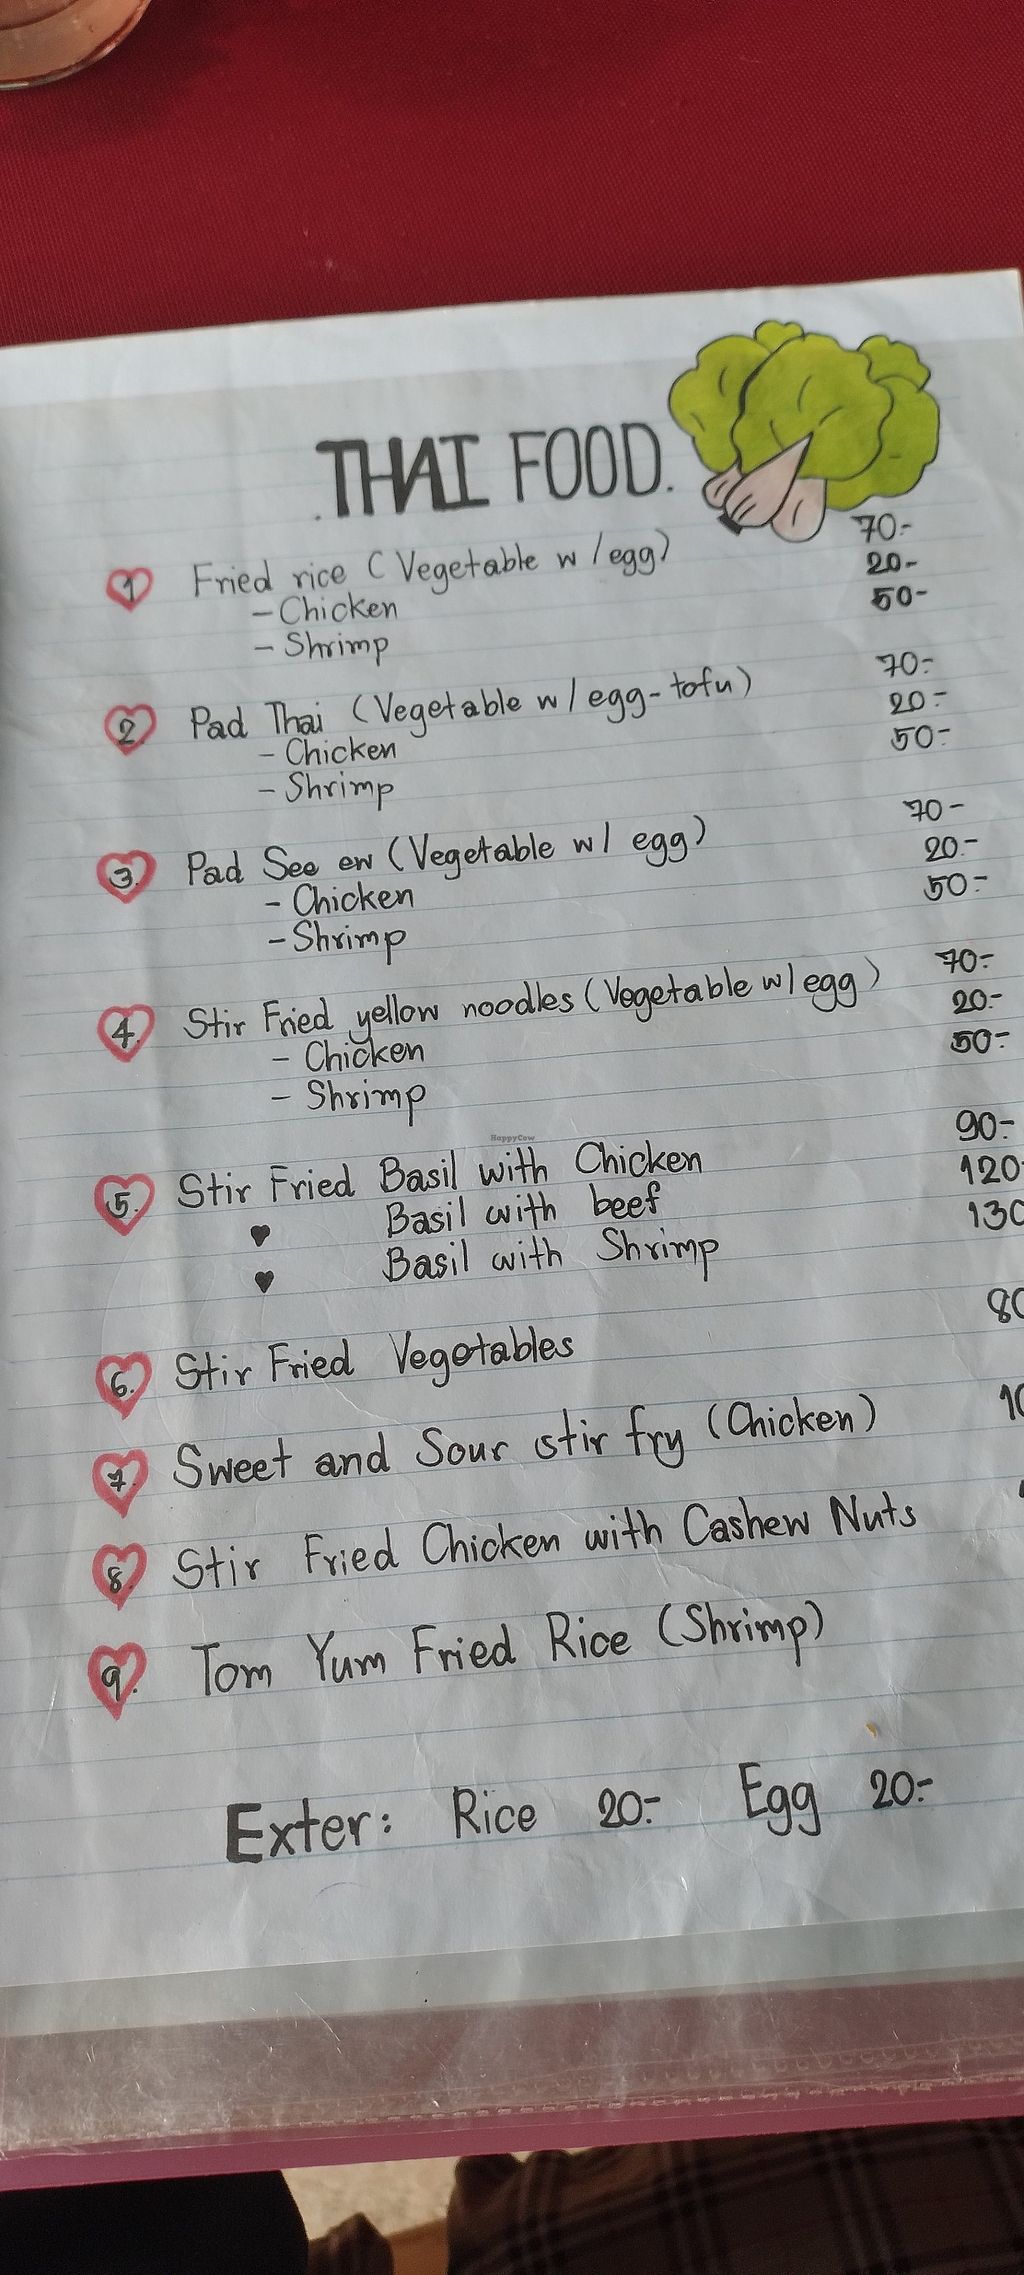 THAI FOOD.
1 Fried rice (Vegetable w/egg) 70-
- Chicken 20-
- Shrimp 50-
2. Pad Thai (Vegetable w/egg-tofu) 70-
- Chicken 20-
- Shrimp 50-
3. Pad See ew (Vegetable w/ egg) 70-
- Chicken 20-
- Shrimp 50-
4. Stir Fried yellow noodles (Vegetable w/egg) 70-
- Chicken 20-
- Shrimp 50-
HappyCow
5. Stir Fried Basil with Chicken 90-
♥ Basil with beef 120-
♥ Basil with Shrimp 130
6. Stir Fried Vegetables 80
7. Sweet and Sour stir fry (Chicken)
8. Stir Fried Chicken with Cashew Nuts
9. Tom Yum Fried Rice (Shrimp)
Exter: Rice 20- Egg 20-